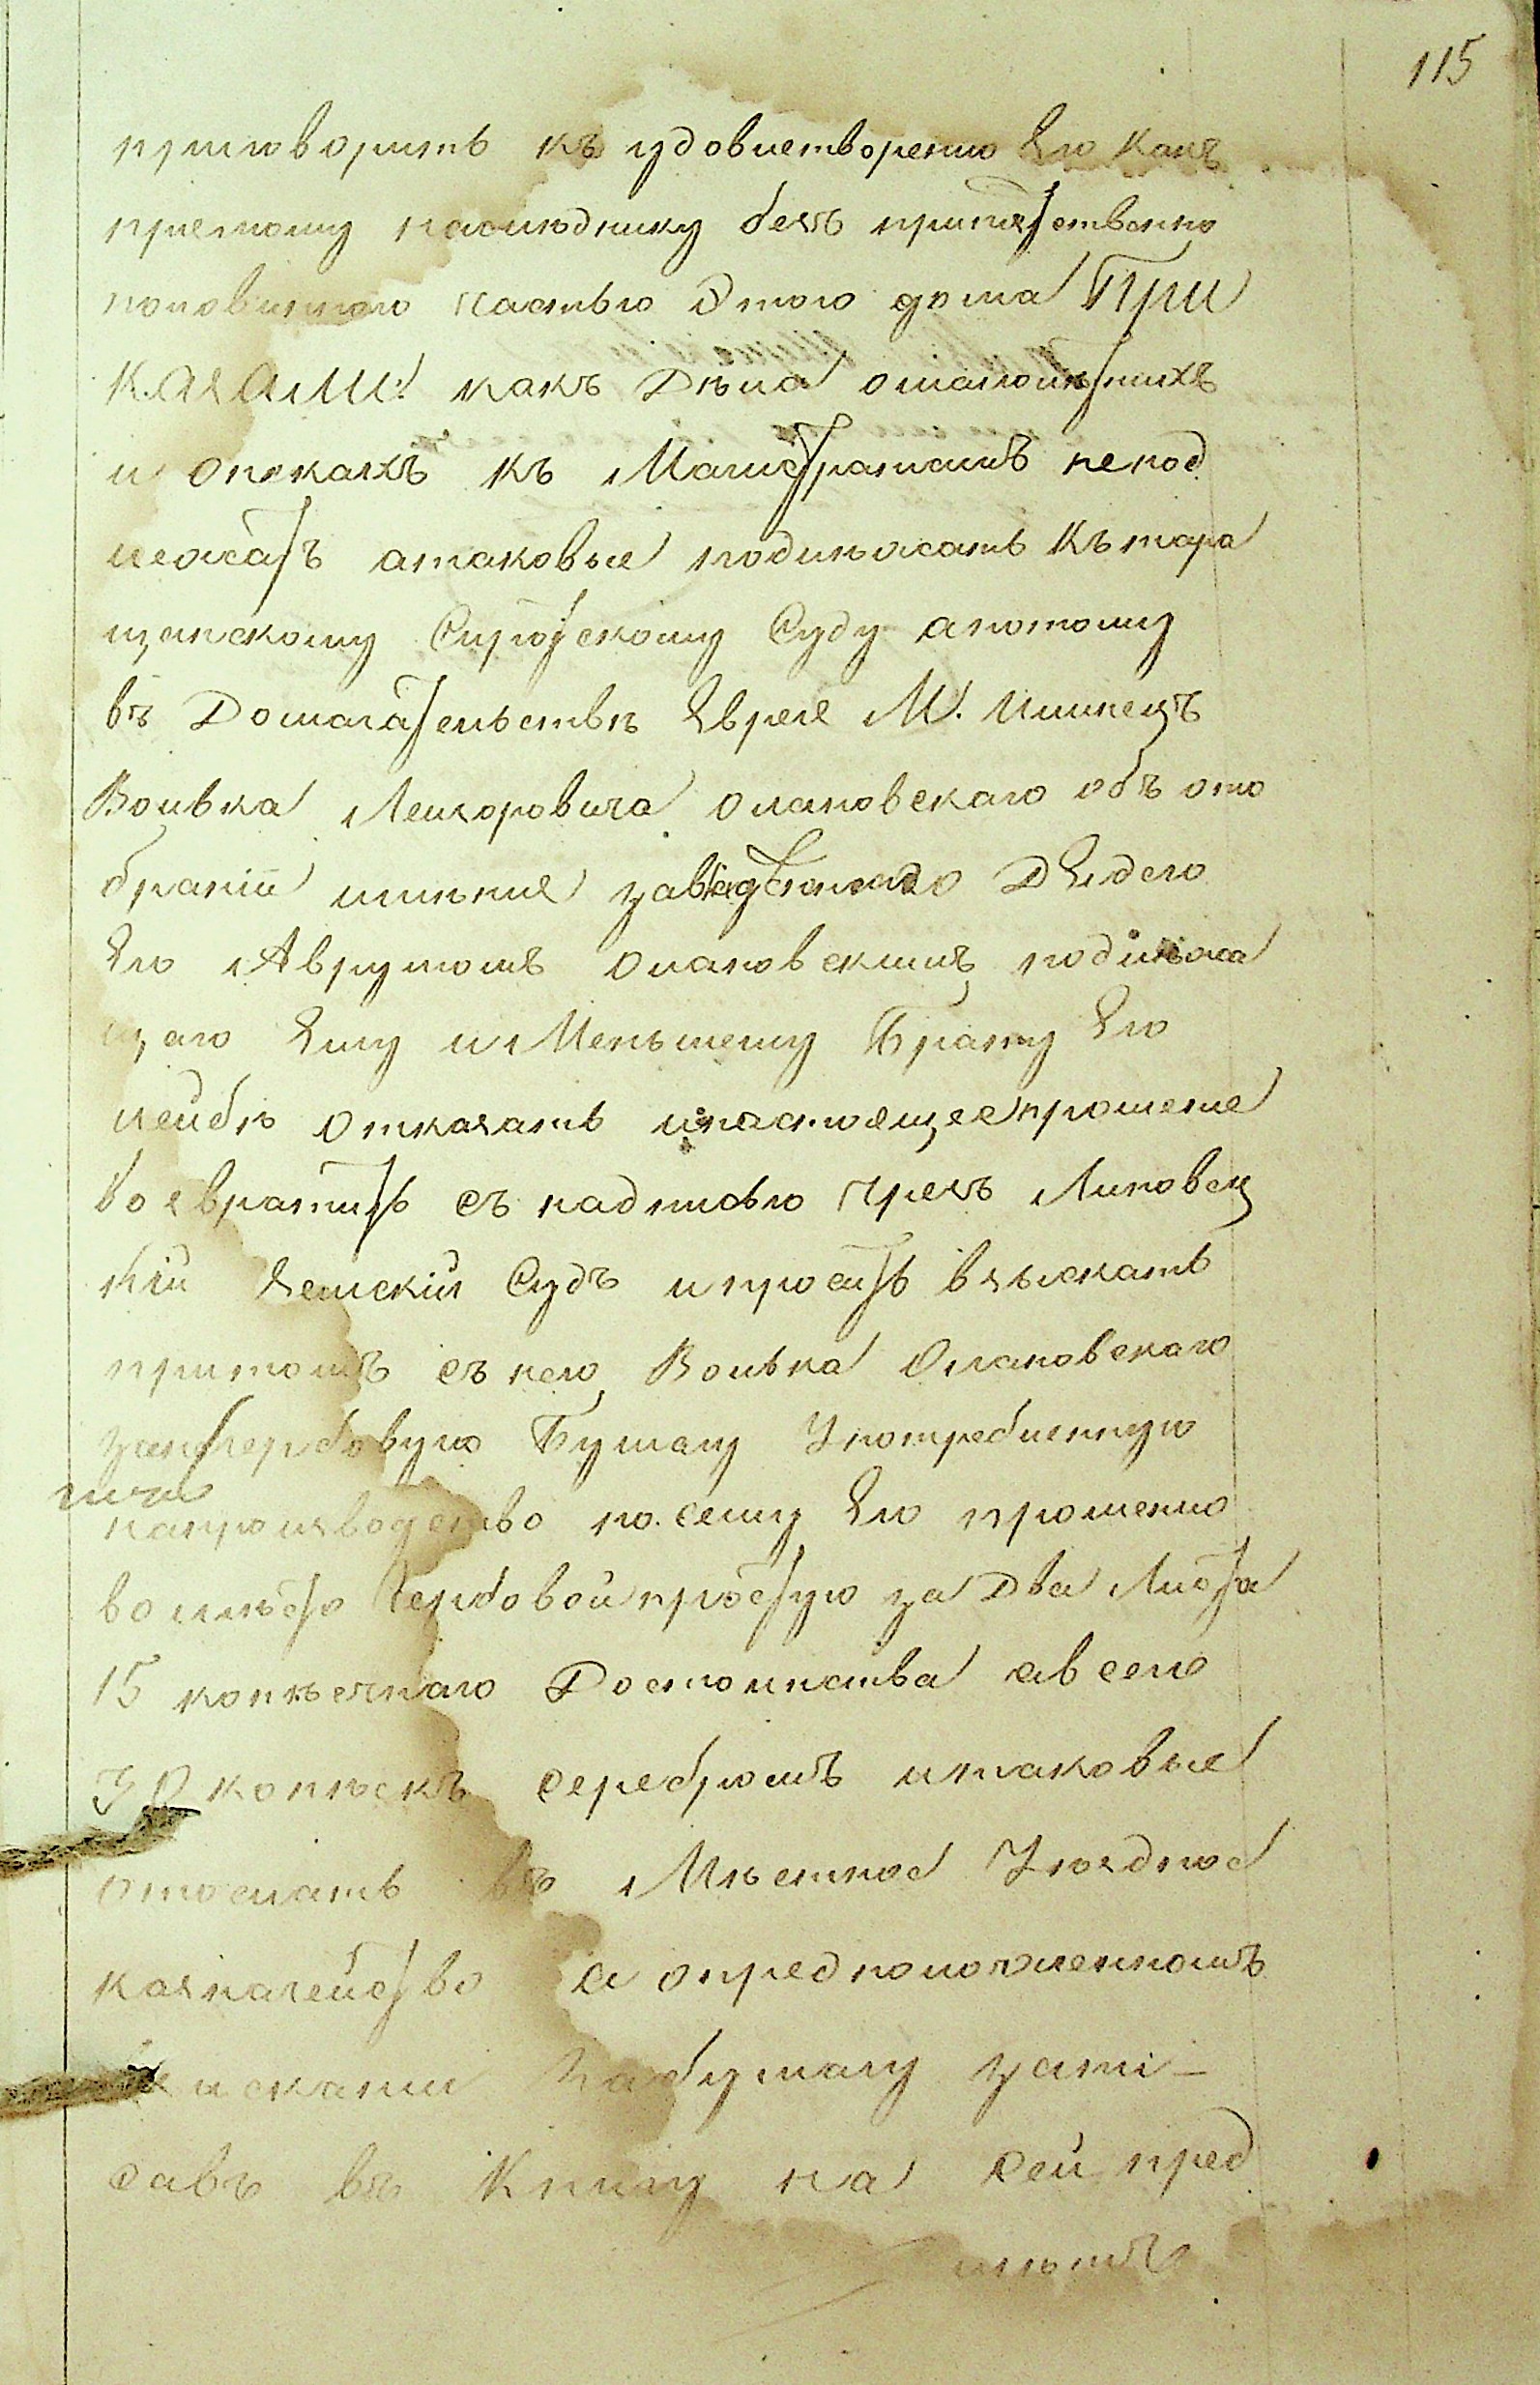 115
приговорить къ удовлетворению Его какъ
прямому наследнику безъ припятственно
половинною частью Этого дома При
КАЗАЛИ: какъ Дѣла омалолѣтнихъ
и опекахъ къ Магистратамъ непод
лежатъ атаковые подлѣжать Къ тара
щанскому Сиротскому Суду апотому
въ Домагательствѣ Еврея М. Илинецъ
Волька Лейзоровича Олановскаго объ ото
браніи имѣния завладѣннаго Дядею
Его Аврумомъ Олановскимъ, подлѣжа
щаго Ему и Меньшему Брату Его
Лейбѣ отказать инастоящее прошение
возвратить съ надписью чрезъ Липовец
кій Земскій Судъ и просить взыскать
притомъ съ него, Волька Олановскаго
за негербовую Бумагу Употребленную
напроизводство по сему Его прошению
вомѣсто Гербовой простую за Два Листа
15 копѣечнаго Достоинства авсего
30 копѣекъ серебромъ итаковые
отослать въ Мѣстное Уѣздное
казначейство а опредположенномъ
взыскании забумагу запи-
савъ въ Книгу на сей пред
мѣтъ